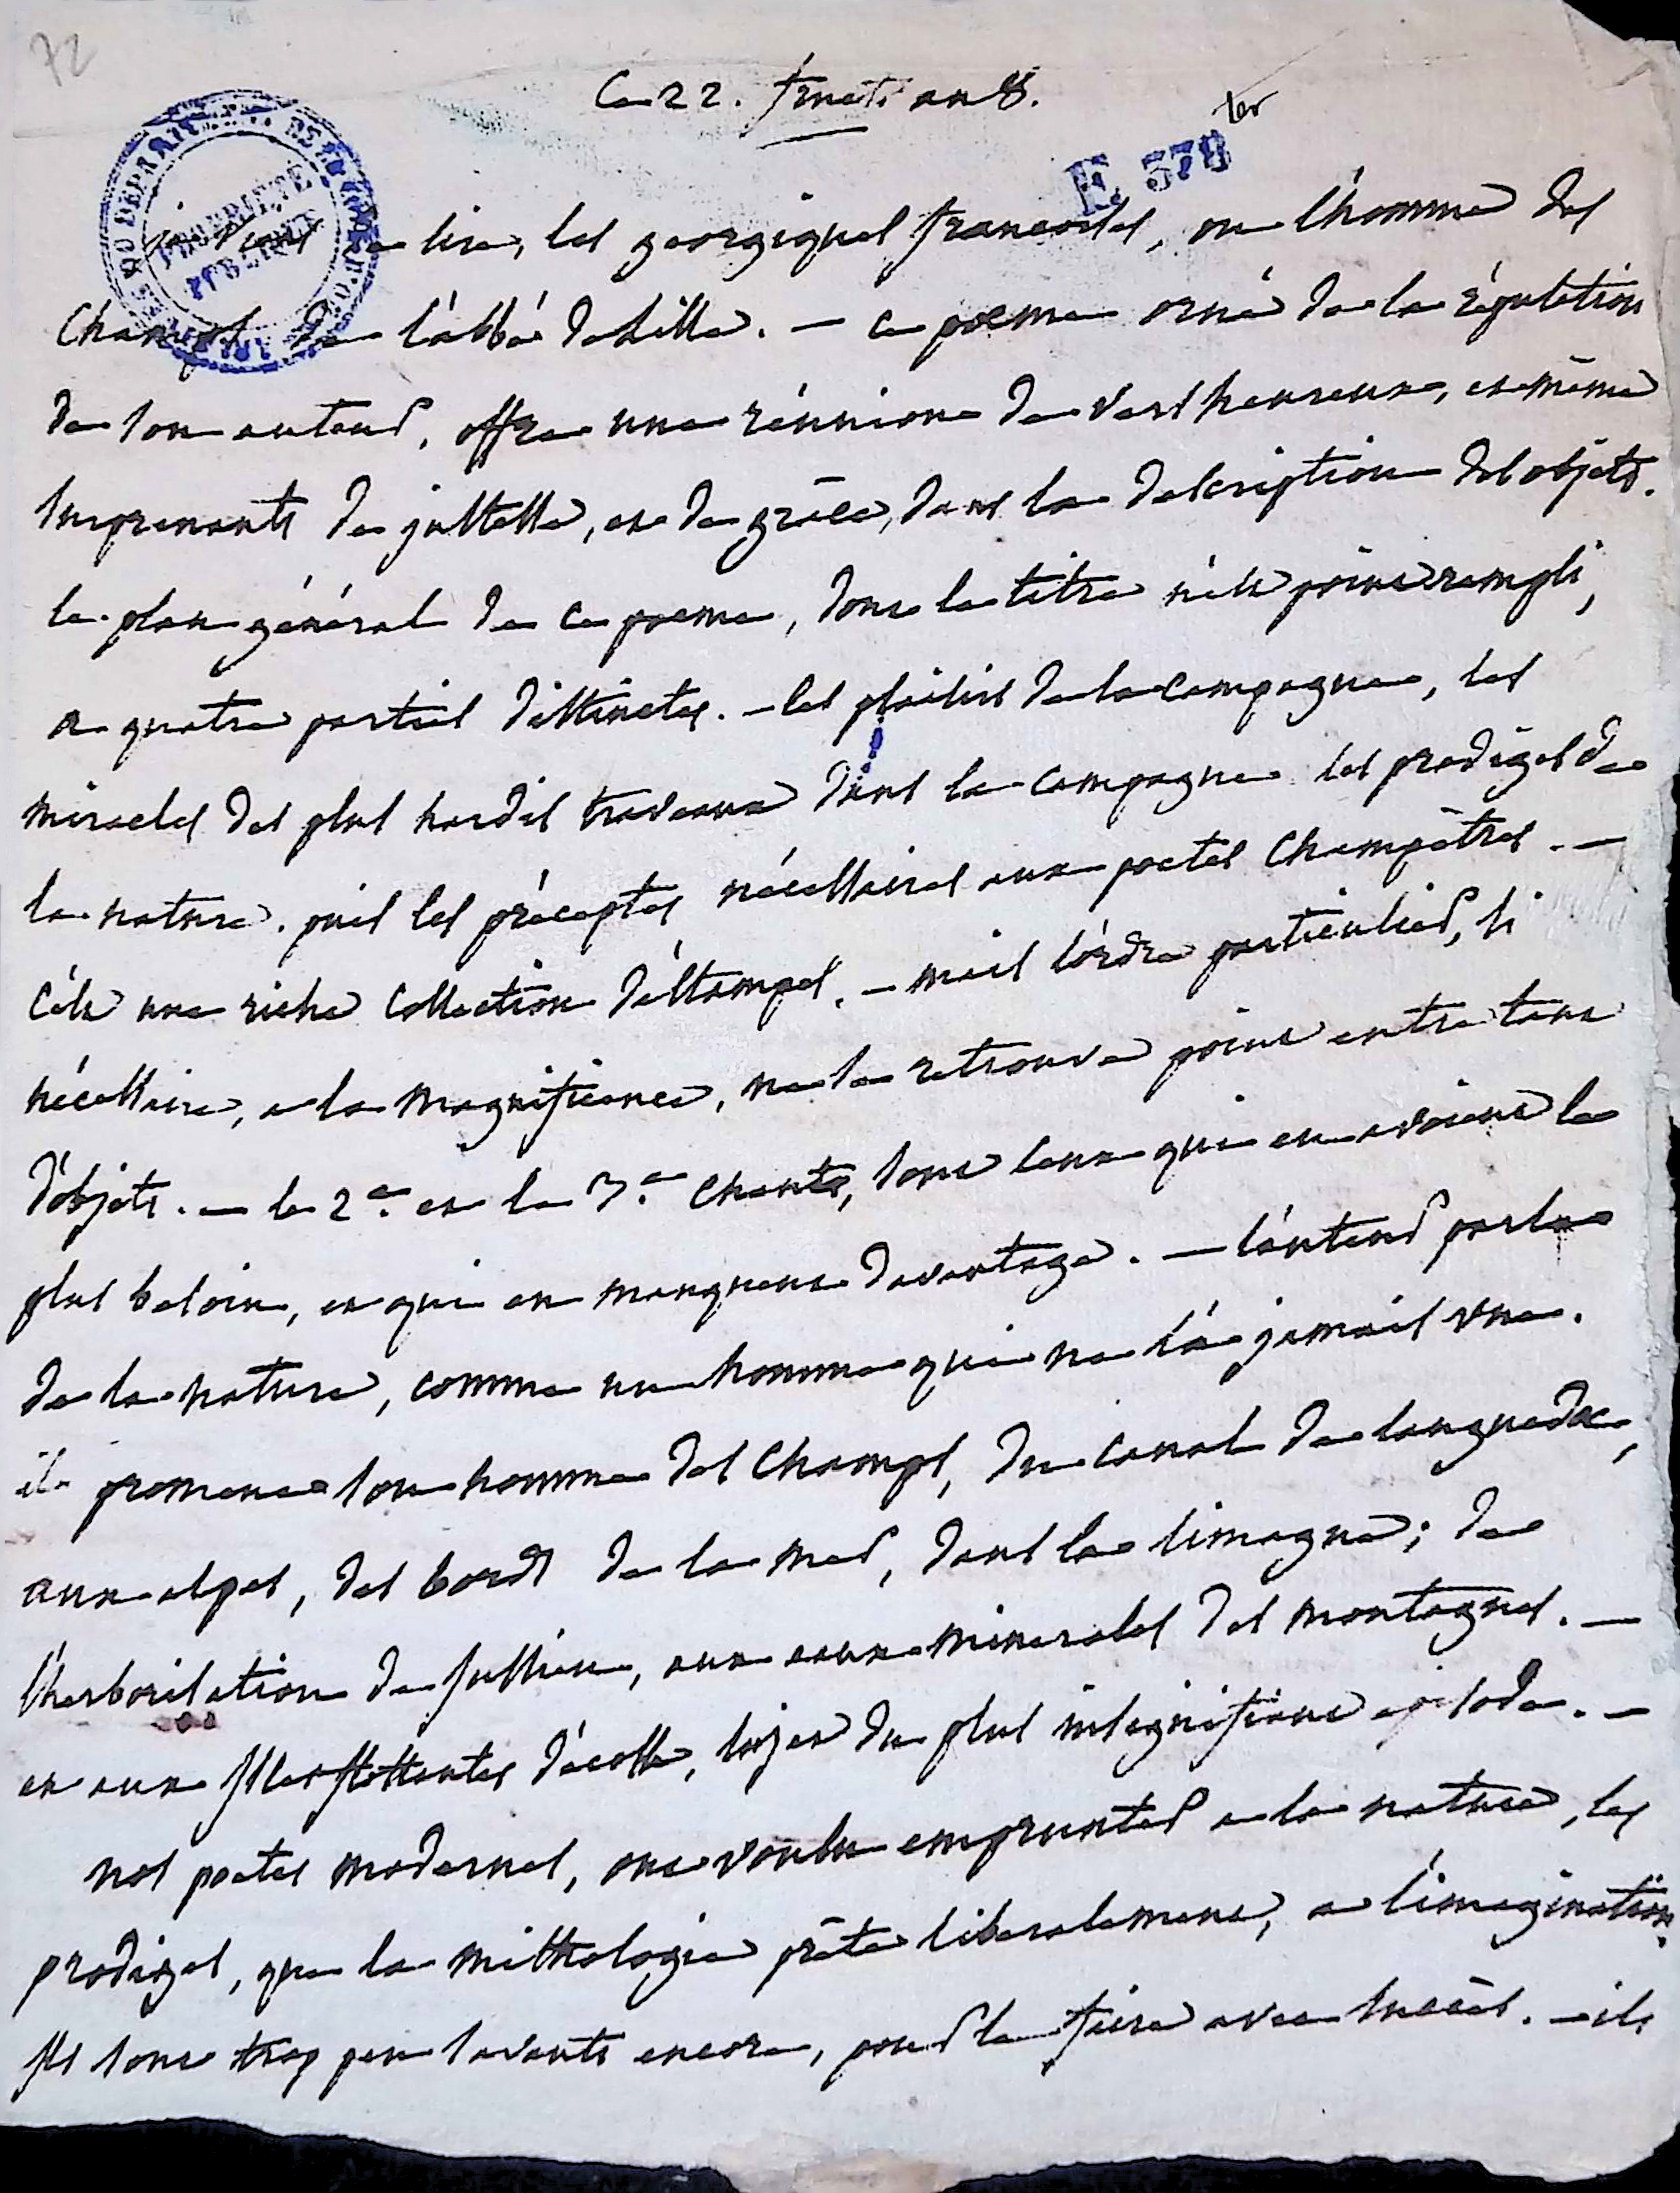 72
Ce 22. fruct. an 8.
ter
E 378
PROPRIÉTÉ
PUBLIQUE
je viens de lire, les georgiques francoises, ou l'homme des
champs de l'abbé delille. - ce poeme orné de la réputation
de son auteur, offre une réunion de vers heureux, et même
surprenants de justesse, et de grâce, dans la description des objets.
le plan général de ce poeme, dont le titre n'est point rempli,
a quatre parties distinctes. - les plaisirs de la campagne, les
miracles des plus hardis travaux dans la campagne les prodiges de
la nature. puis les préceptes nécessaires aux poetes champêtres. -
c'est une riche collection d'estampes. - mais l'ordre particulier, si
nécessaire, a la magnificence, ne se retrouve point entre tant
d'objets. - le 2e. et le 3e. chants, sont ceux qui en avoient le
plus besoin, et qui en manquent davantage. - l'auteur parle
de la nature, comme un homme qui ne l'a jamais vue.
il promene son homme des champs, du canal de languedoc,
aux alpes, des bords de la mer, dans la limagne; de
l'herborisation de jussieu, aux eaux minerales des montagnes. -
et aux isles flottantes d'écosse, sujet du plus insignifiant episode. -
nos poetes modernes, ont voulu emprunter a la nature, les
prodiges, que la mithologie prête liberalement, a l'imagination.
ils sont trop peu savants encore, pour le faire avec succès. - ils